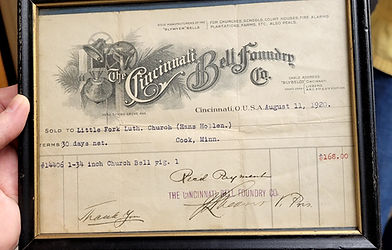 SOLE MANUFACTURERS OF THE
"BLYMYER" BELLS
FOR CHURCHES, SCHOOLS, COURT HOUSES, FIRE ALARMS
PLANTATIONS, FARMS, ETC. ALSO PEALS.
The Cincinnati Bell Foundry Co.
CABLE ADDRESS
CINCINNATI.
Cincinnati, O. U.S.A. August 11, 1920.
SOLD TO Little Fork Luth. Church (Hans Hollen.)
TERMS 30 days net. Cook, Minn.
#14406 1-34 inch Church Bell pkg. 1 $168.00
Recd Payment
THE CINCINNATI BELL FOUNDRY CO.
V. Pres
Thank You